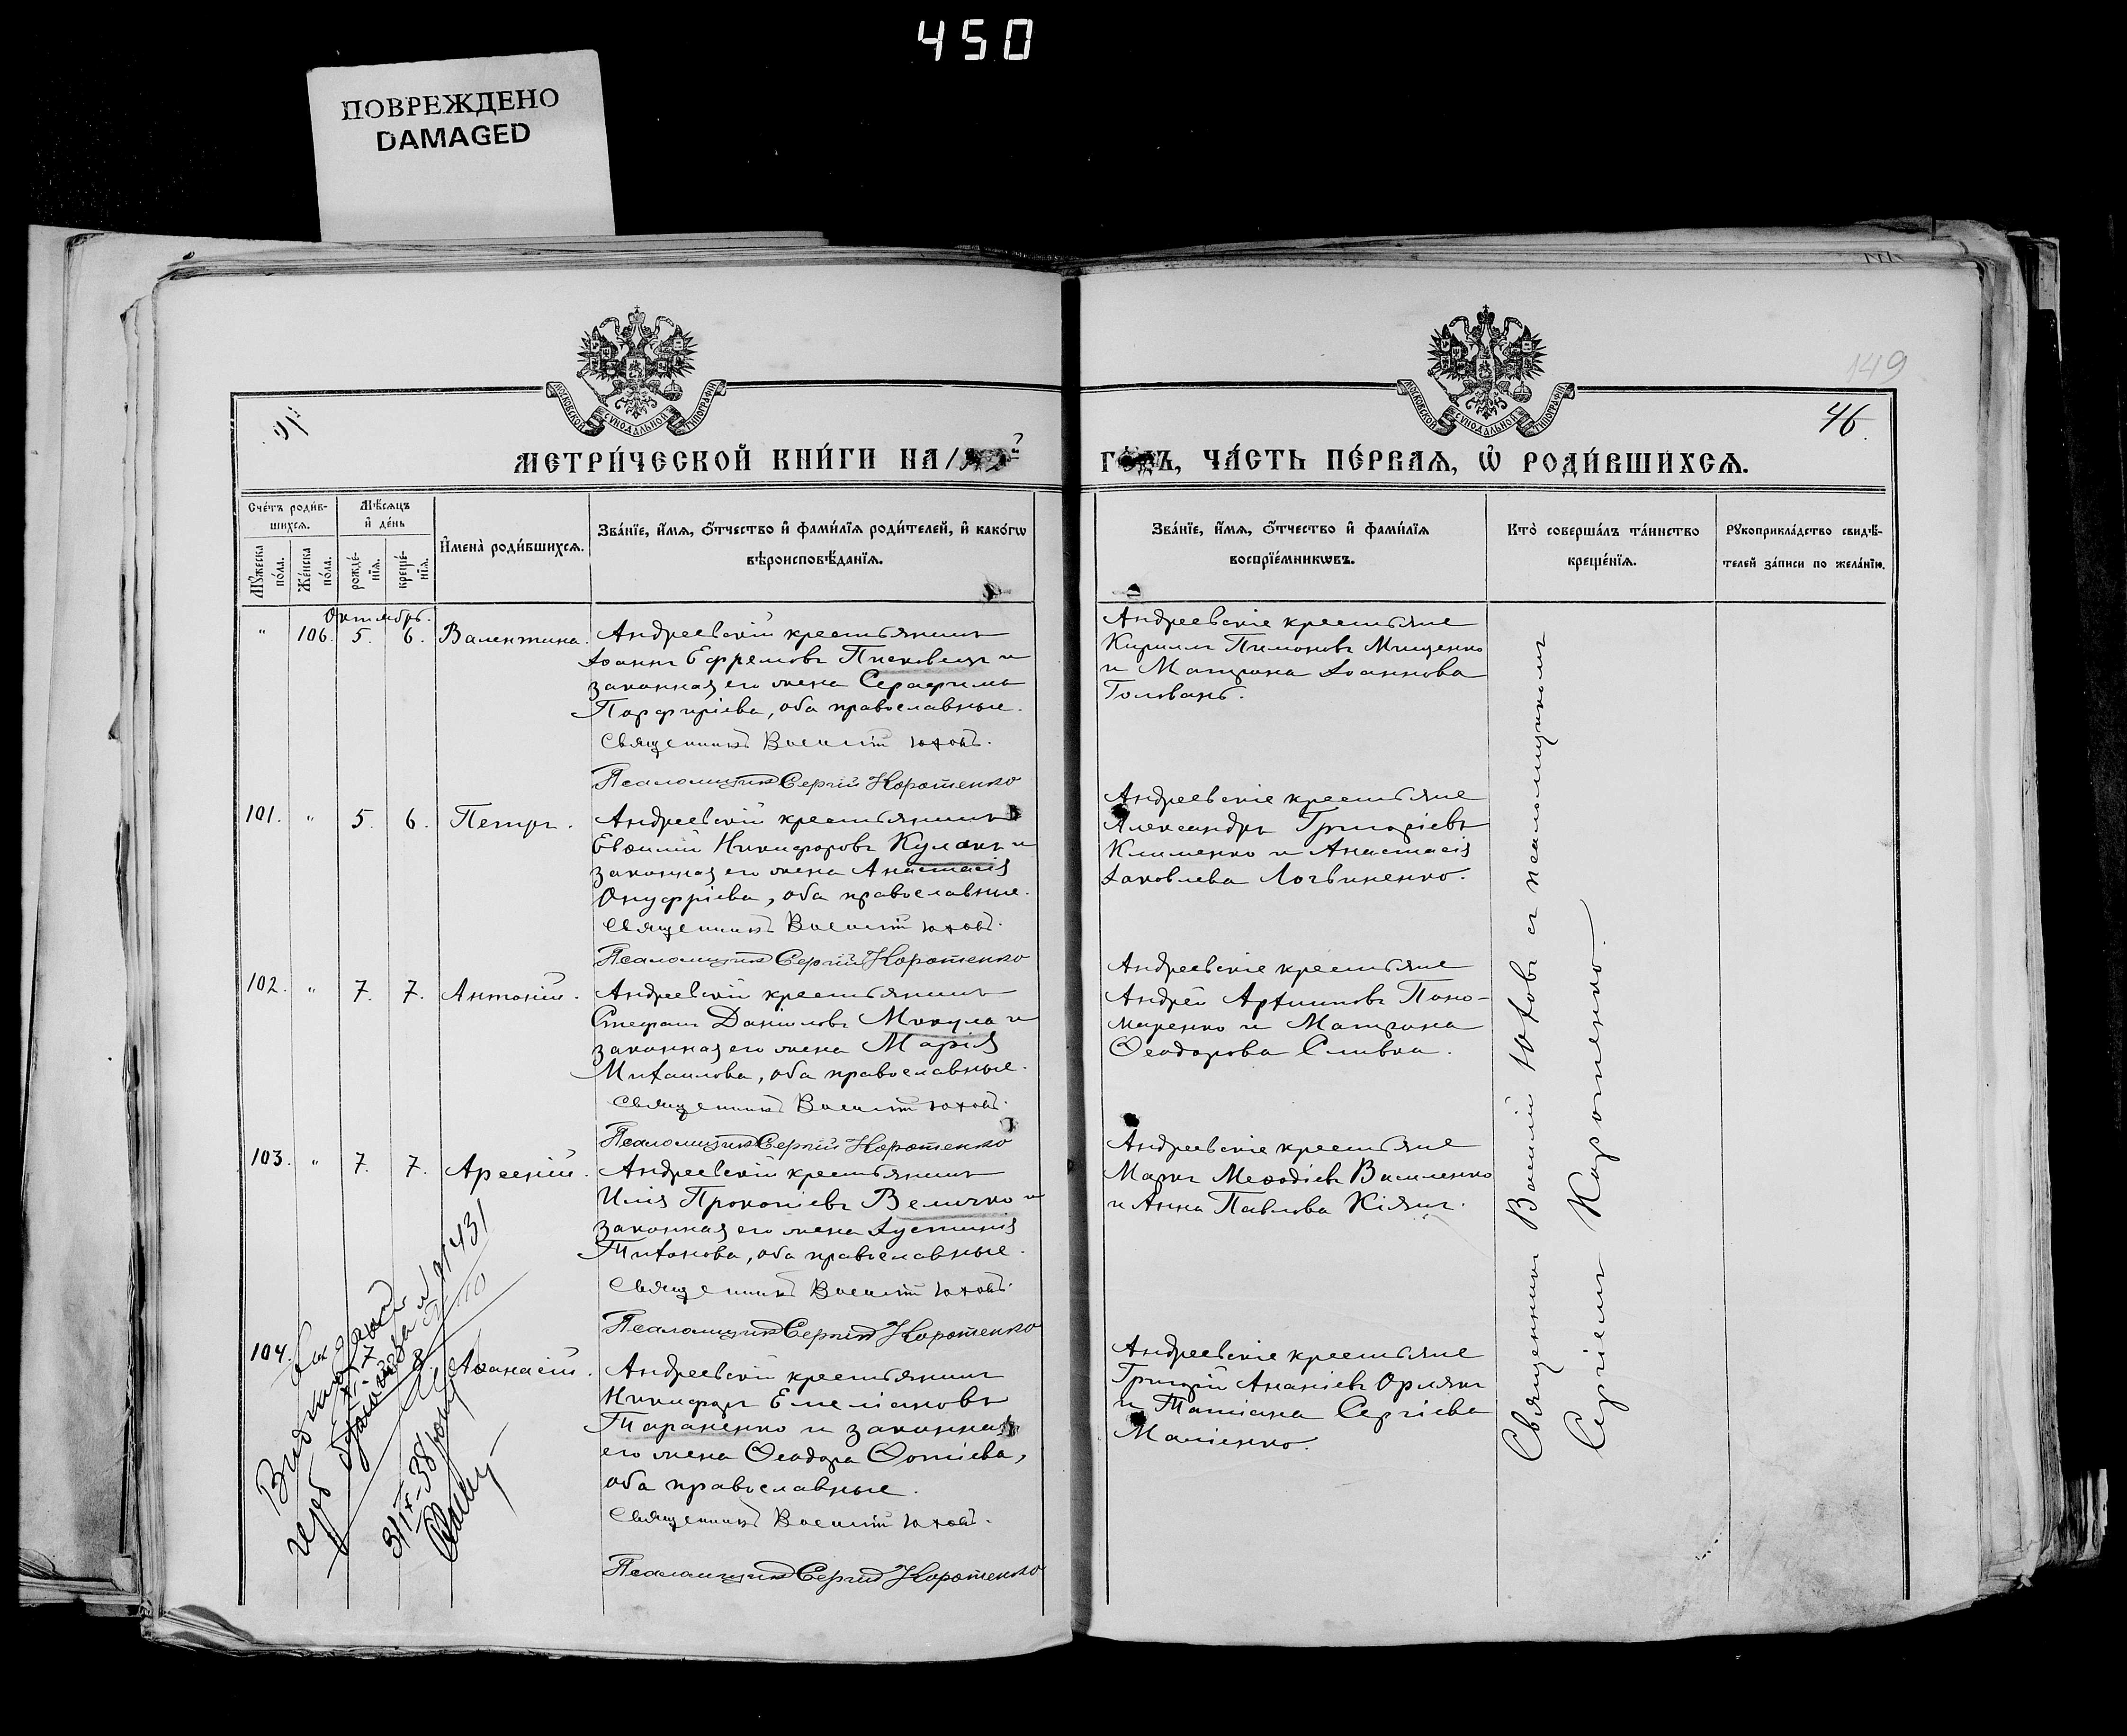 450
ПОВРЕЖДЕНО
DAMAGED
149
46.
МОСКОВСКОЙ СУНОДАЛЬНОЙ ТИПОГРАФІИ
МОСКОВСКОЙ СУНОДАЛЬНОЙ ТИПОГРАФІИ
МЕТРИ́ЧЕСКОЙ КНИ́ГИ НА
ГОДЪ, ЧА́СТЬ ПЕ́РВАѦ, Ѡ҆ РОДИ́ВШИХСѦ.
Сче́тъ роди́в-
шихсѧ.
Мꙋжеска по́ла.
Же́нска по́ла.
Мѣ́сѧцъ
и҆ де́нь
рожде́-
нїѧ.
креще́-
нїѧ.
И҆мена̀ роди́вшихсѧ.
Зва́нїе, и҆́мѧ, ѻ҆́тчество и҆ фами́лїѧ роди́телей, и҆ како́гѡ
вѣроисповѣ́данїѧ.
Зва́нїе, и҆́мѧ, ѻ҆́тчество и҆ фами́лїѧ
воспрїе́мникѡвъ.
Кто̀ соверша́лъ та́инство
креще́нїѧ.
Рꙋкоприкла́дство свидѣ́-
телей за́писи по жела́нїю.
Октябрь.
" 106. 5. 6. Валентина.
Андреевскій крестьянинъ
Іоаннъ Ефремовъ Писковецъ и
законная его жена Серафима
Порфиріева, оба православные.
Священникъ Василій Юховъ.
Псаломщикъ Сергій Коротенко
Андреевскіе крестьяне
Кириллъ Пимоновъ Мищенко
и Матрона Іоаннова
Головань.
101. " 5. 6. Петръ.
Андреевскій крестьянинъ
Евѳимій Никифоровъ Кулакъ и
законная его жена Анастасія
Онуфріева, оба православные.
Священникъ Василій Юховъ.
Псаломщикъ Сергій Коротенко
Андреевскіе крестьяне
Александръ Григоріевъ
Клименко и Анастасія
Іаковлева Логвиненко.
102. " 7. 7. Антоній.
Андреевскій крестьянинъ
Стефанъ Даніиловъ Микула и
законная его жена Марія
Михаилова, оба православные.
Священникъ Василій Юховъ.
Псаломщикъ Сергій Коротенко
Андреевскіе крестьяне
Андрей Архиповъ Поно-
маренко и Матрона
Ѳеодорова Сливка.
103. " 7. 7. Арсеній.
Андреевскій крестьянинъ
Илія Прокопіевъ Величко и
законная его жена Іустинія
Тихонова, оба православные.
Священникъ Василій Юховъ.
Псаломщикъ Сергій Коротенко
Андреевскіе крестьяне
Маркъ Меѳодіевъ Василенко
и Анна Павлова Кіянъ.
104. Аѳанасій.
Андреевскій крестьянинъ
Никифоръ Емеліановъ
Тараненко и законная
его жена Ѳеодора Ѳотіева,
оба православные.
Священникъ Василій Юховъ.
Псаломщикъ Сергій Коротенко
Андреевскіе крестьяне
Григорій Ананіевъ Орлякъ
и Татіана Сергіева
Матіенко.
Священникъ Василій Юховъ съ псаломщикомъ
Сергіемъ Коротенко.